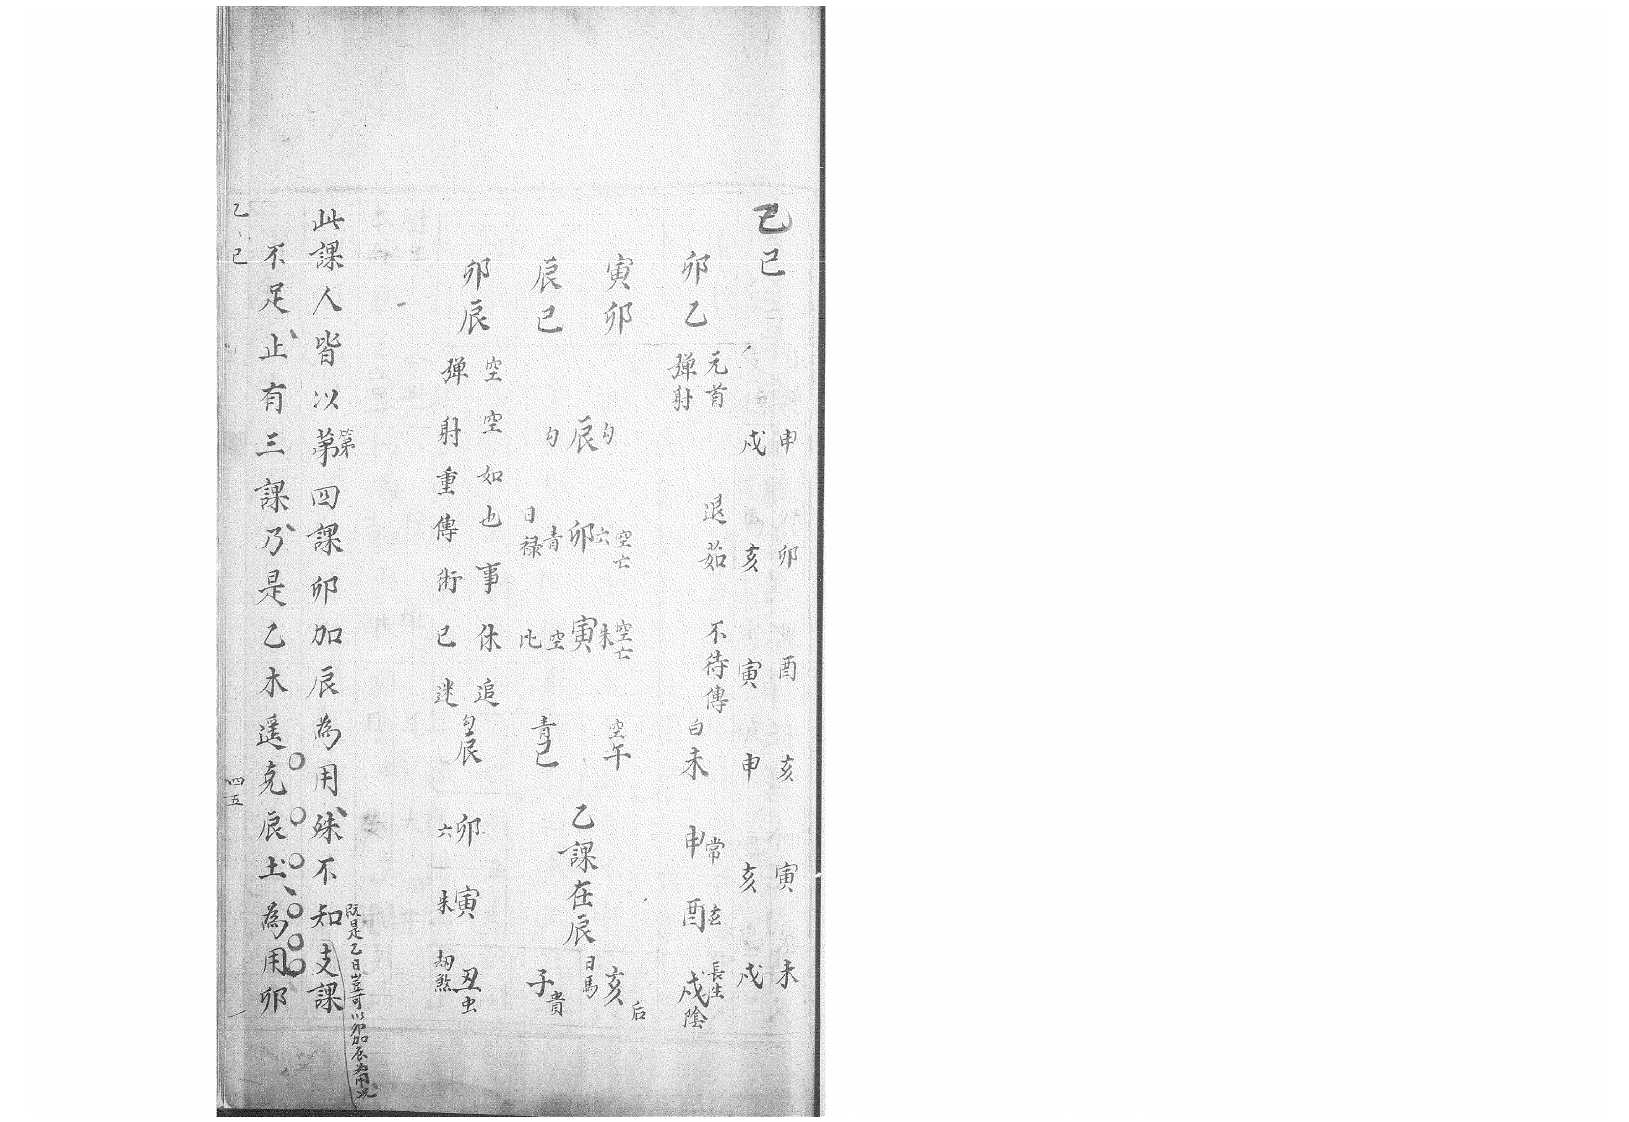 乙巳
申卯酉亥寅未
戌亥寅申亥戌
卯乙
寅卯
辰巳
卯辰
元首
彈射
退茹
不待傳
勾辰勾
空亡六卯青日祿
空亡朱寅空
白未
申常
酉玄
長生戌陰
空午
青巳
乙課在辰
日馬亥后
子貴
空空如也事休追
彈射重傳術已迷
勾辰
卯六
寅朱
劫煞丑虫
此課人皆以第四課卯加辰為用殊不知支課
第
既是乙日豈可以卯加辰為用
不足止有三課乃是乙木遥克辰土為用卯
乙巳
四五